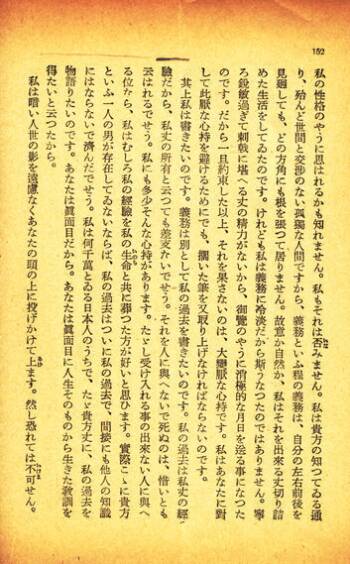 152
私の性格のやうに思はれるかも知れません。私もそれは否みません。私は貴方の知つてゐる通
り、殆んど世間と交渉のない孤獨な人間ですから、義務といふ程の義務は、自分の左右前後を
見廻しても、どの方角にも根を張つて居りません。故意か自然か、私はそれを出來る丈切り詰
めた生活をしてゐたのです。けれども私は義務に冷淡だから斯うなつたのではありません。寧
ろ鋭敏過ぎて刺戟に堪へる丈の精力がないから、御覽のやうに消極的な月日を送る事になつた
のです。だから一旦約束した以上、それを果さないのは、大變厭な心持です。私はあなたに對
して此厭な心持を避けるためにでも、擱いた筆を又取り上げなければならないのです。
其上私は書きたいのです。義務は別として私の過去を書きたいのです。私の過去は私丈の經
驗だから、私丈の所有と云つても差支ないでせう。それを人に與へないで死ぬのは、惜いとも
云はれるでせう。私にも多少そんな心持があります。たゞし受け入れる事の出來ない人に與へ
る位なら、私はむしろ私の經驗を私の生命と共に葬つた方が好いと思ひます。實際こゝに貴方
といふ一人の男が存在してゐないならば、私の過去はついに私の過去で、間接にも他人の知識
にはならないで濟んだでせう。私は何千萬とゐる日本人のうちで、たゞ貴方丈に、私の過去を
物語りたいのです。あなたは眞面目だから。あなたは眞面目に人生そのものから生きた教訓を
得たいと云つたから。
私は暗い人世の影を遠慮なくあなたの頭の上に投げかけて上ます。然し恐れては不可せん。